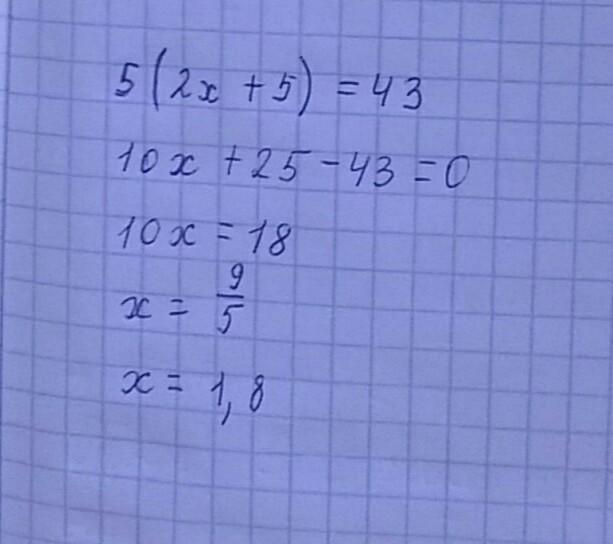 5(2x + 5) = 43
10x + 25 - 43 = 0
10x = 18
x = 9/5
x = 1,8